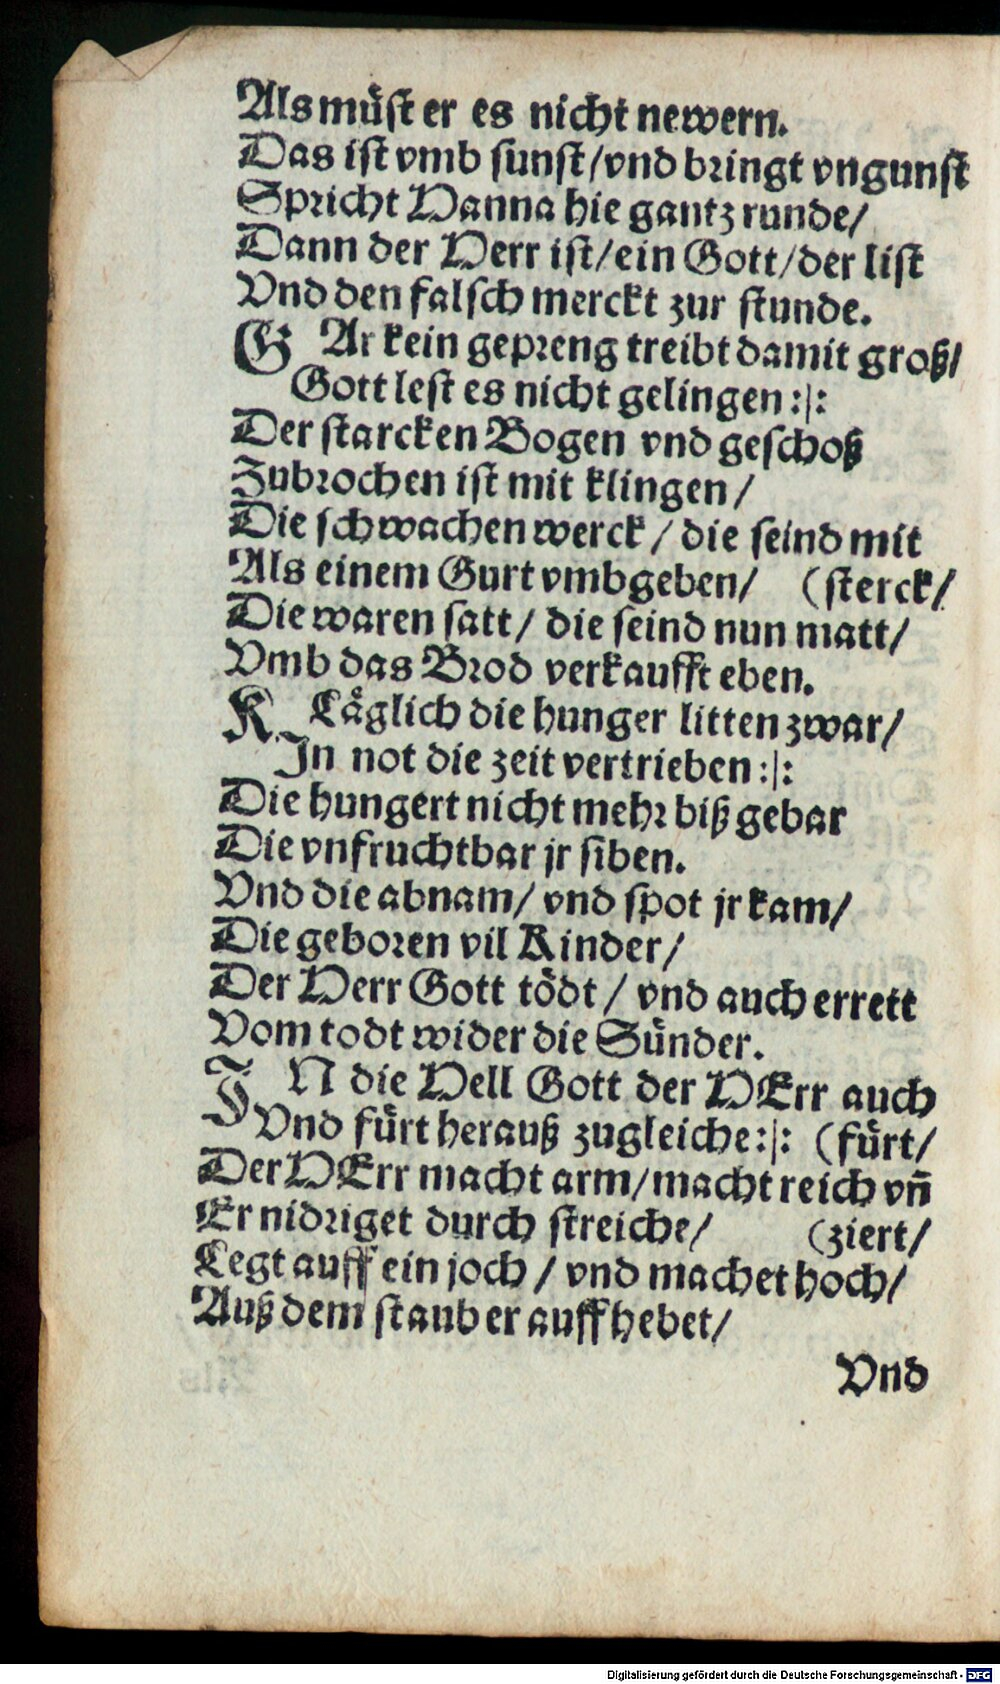 Als muͤst er es nicht newern.
Das ist vmb sunst/vnd bringt vngunst
Spricht Hanna hie gantz runde/
Dann der Herr ist/ein Gott/der list
Vnd den falsch merckt zur stunde.
GAr kein gepreng treibt damit groß/
Gott lest es nicht gelingen :|:
Der starcken Bogen vnd geschoß
Zubrochen ist mit klingen/
Die schwachen werck/ die seind mit
Als einem Gurt vmbgeben/ (sterck/
Die waren satt/ die seind nun matt/
Vmb das Brod verkaufft eben.
KLaͤglich die hunger litten zwar/
Jn not die zeit vertrieben :|:
Die hungert nicht mehr biß gebar
Die vnfruchtbar jr siben.
Vnd die abnam/ vnd spot jr kam/
Die geboren vil Kinder/
Der Herr Gott toͤdt/ vnd auch errett
Vom todt wider die Suͤnder.
JN die Hell Gott der HErr auch
Vnd fuͤrt herauß zugleiche:|: (fuͤrt/
Der HErr macht arm/macht reich vn̄
Er nidriget durch streiche/ (ziert/
Legt auff ein joch/ vnd machet hoch/
Auß dem staub er auff hebet/
Vnd
Digitalisierung gefördert durch die Deutsche Forschungsgemeinschaft - DFG